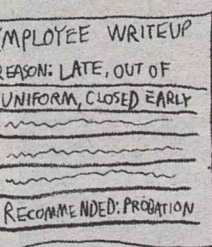 EMPLOYEE WRITEUP
REASON: LATE, OUT OF
UNIFORM, CLOSED EARLY
RECOMMENDED: PROBATION